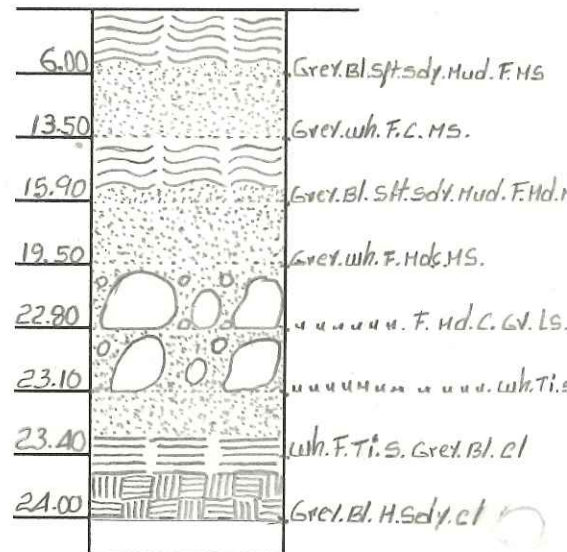 6.00 Grey.Bl.Sft.Sdy.Mud.F.MS
13.50 Grey.wh.F.C.MS.
15.90 Grey.Bl.Sft.Sdy.Mud.F.Md.
19.50 Grey.wh.F.Mdc.MS.
22.80 " " " " " ". F.Md.C.GV.LS.
23.10 wh.Ti.S
23.40 wh.F.Ti.S.Grey.Bl.Cl
24.00 Grey.Bl.H.Sdy.cl